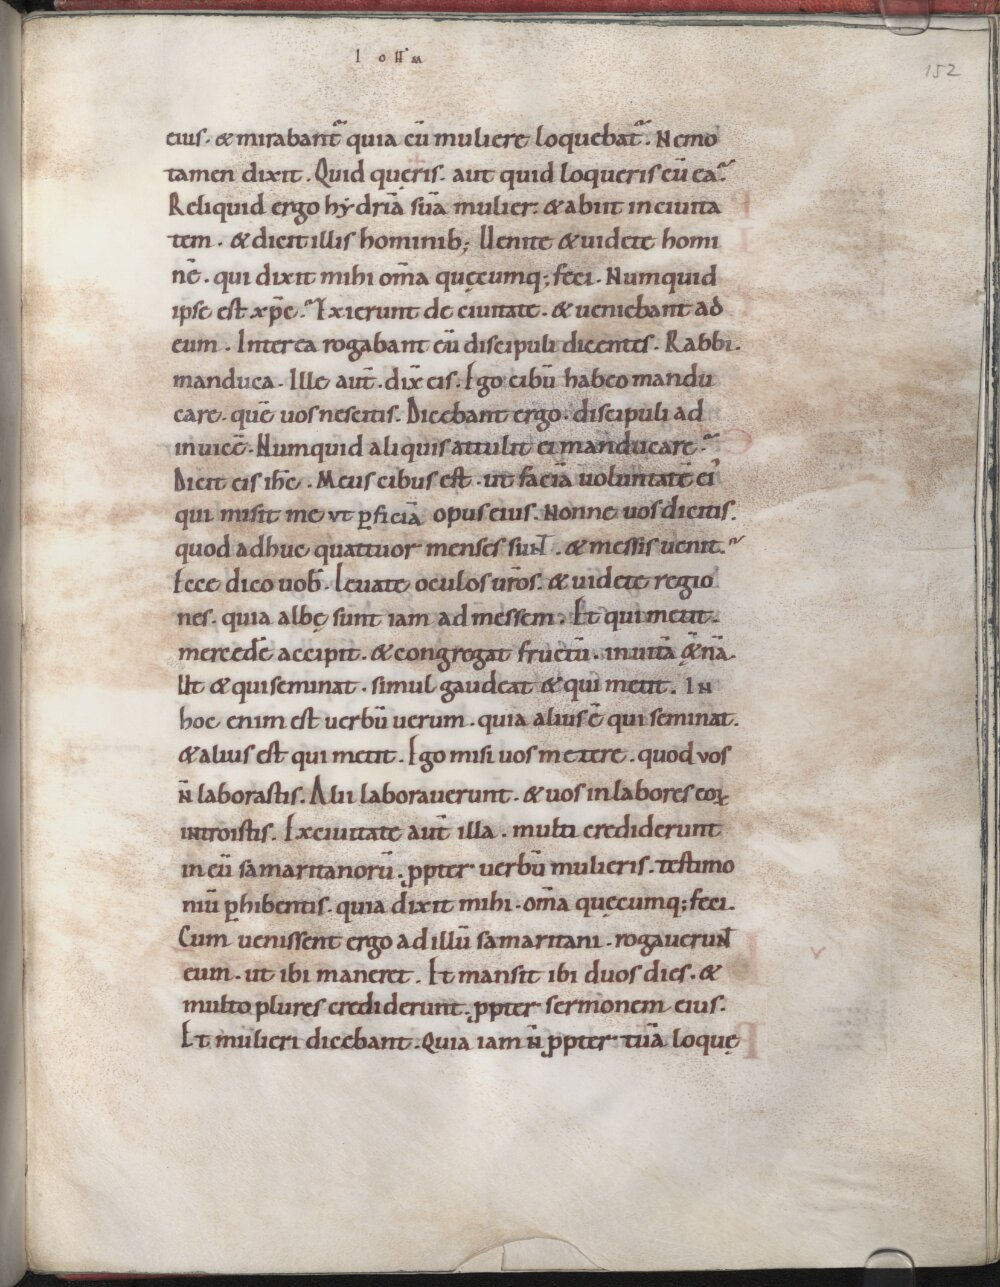 IOHA
152
eius. & mirabant̄ quia cū muliere loquebat̄. Nemo
tamen dixit. Quid quęris. aut quid loqueris cū ea?
Reliquid ergo hẏdriā suā mulier. & abiit in ciuita
tem. & dicit illis hominib; Uenite & uidete homi
nē. qui dixit mihi om̄a quęcumq; feci. Numquid
ipse est xp̄c? Exierunt de ciuitate. & ueniebant ad
eum. Interea rogabant eū discipuli dicentes. Rabbi.
manduca. Ille aut̄. dix̄ eis. Ego cibū habeo mandu
care. quē uos nescitis. Dicebant ergo. discipuli ad
inuicē. Numquid aliquis attulit ei manducare?
Dicit eis ih̄c. Meus cibus est. ut faciā uoluntatē ei'
qui misit me vt ꝑficiā opus eius. Nonne uos dicitis.
quod adhuc quattuor menses sunt. & messis uenit?
Ecce dico uob̄. Leuate oculos ur̄os. & uidete regio
nes. quia albę sunt iam ad messem. Et qui metit.
mercedē accipit. & congregat fructū. in uitā &̨nā.
Ut & qui seminat. simul gaudeat & qui metit. IN
hoc enim est uerbū uerum. quia alius ē qui seminat.
& alius est qui metit. Ego misi uos metere. quod vos
n̄ laborastis. Alii laborauerunt. & uos in labores eoꝝ
introistis. Ex ciuitate aut̄ illa. multi crediderunt
in eū samaritanorū. ꝓpter uerbū mulieris. testimo
niū ꝑhibentis. quia dixit mihi. om̄a quęcumq; feci.
Cum uenissent ergo ad illū samaritani. rogauerunt
eum. ut ibi maneret. Et mansit ibi duos dies. &
multo plures crediderunt. ꝓpter sermonem eius.
Et mulieri dicebant. Quia iam n̄ ꝓpter tuā loquę